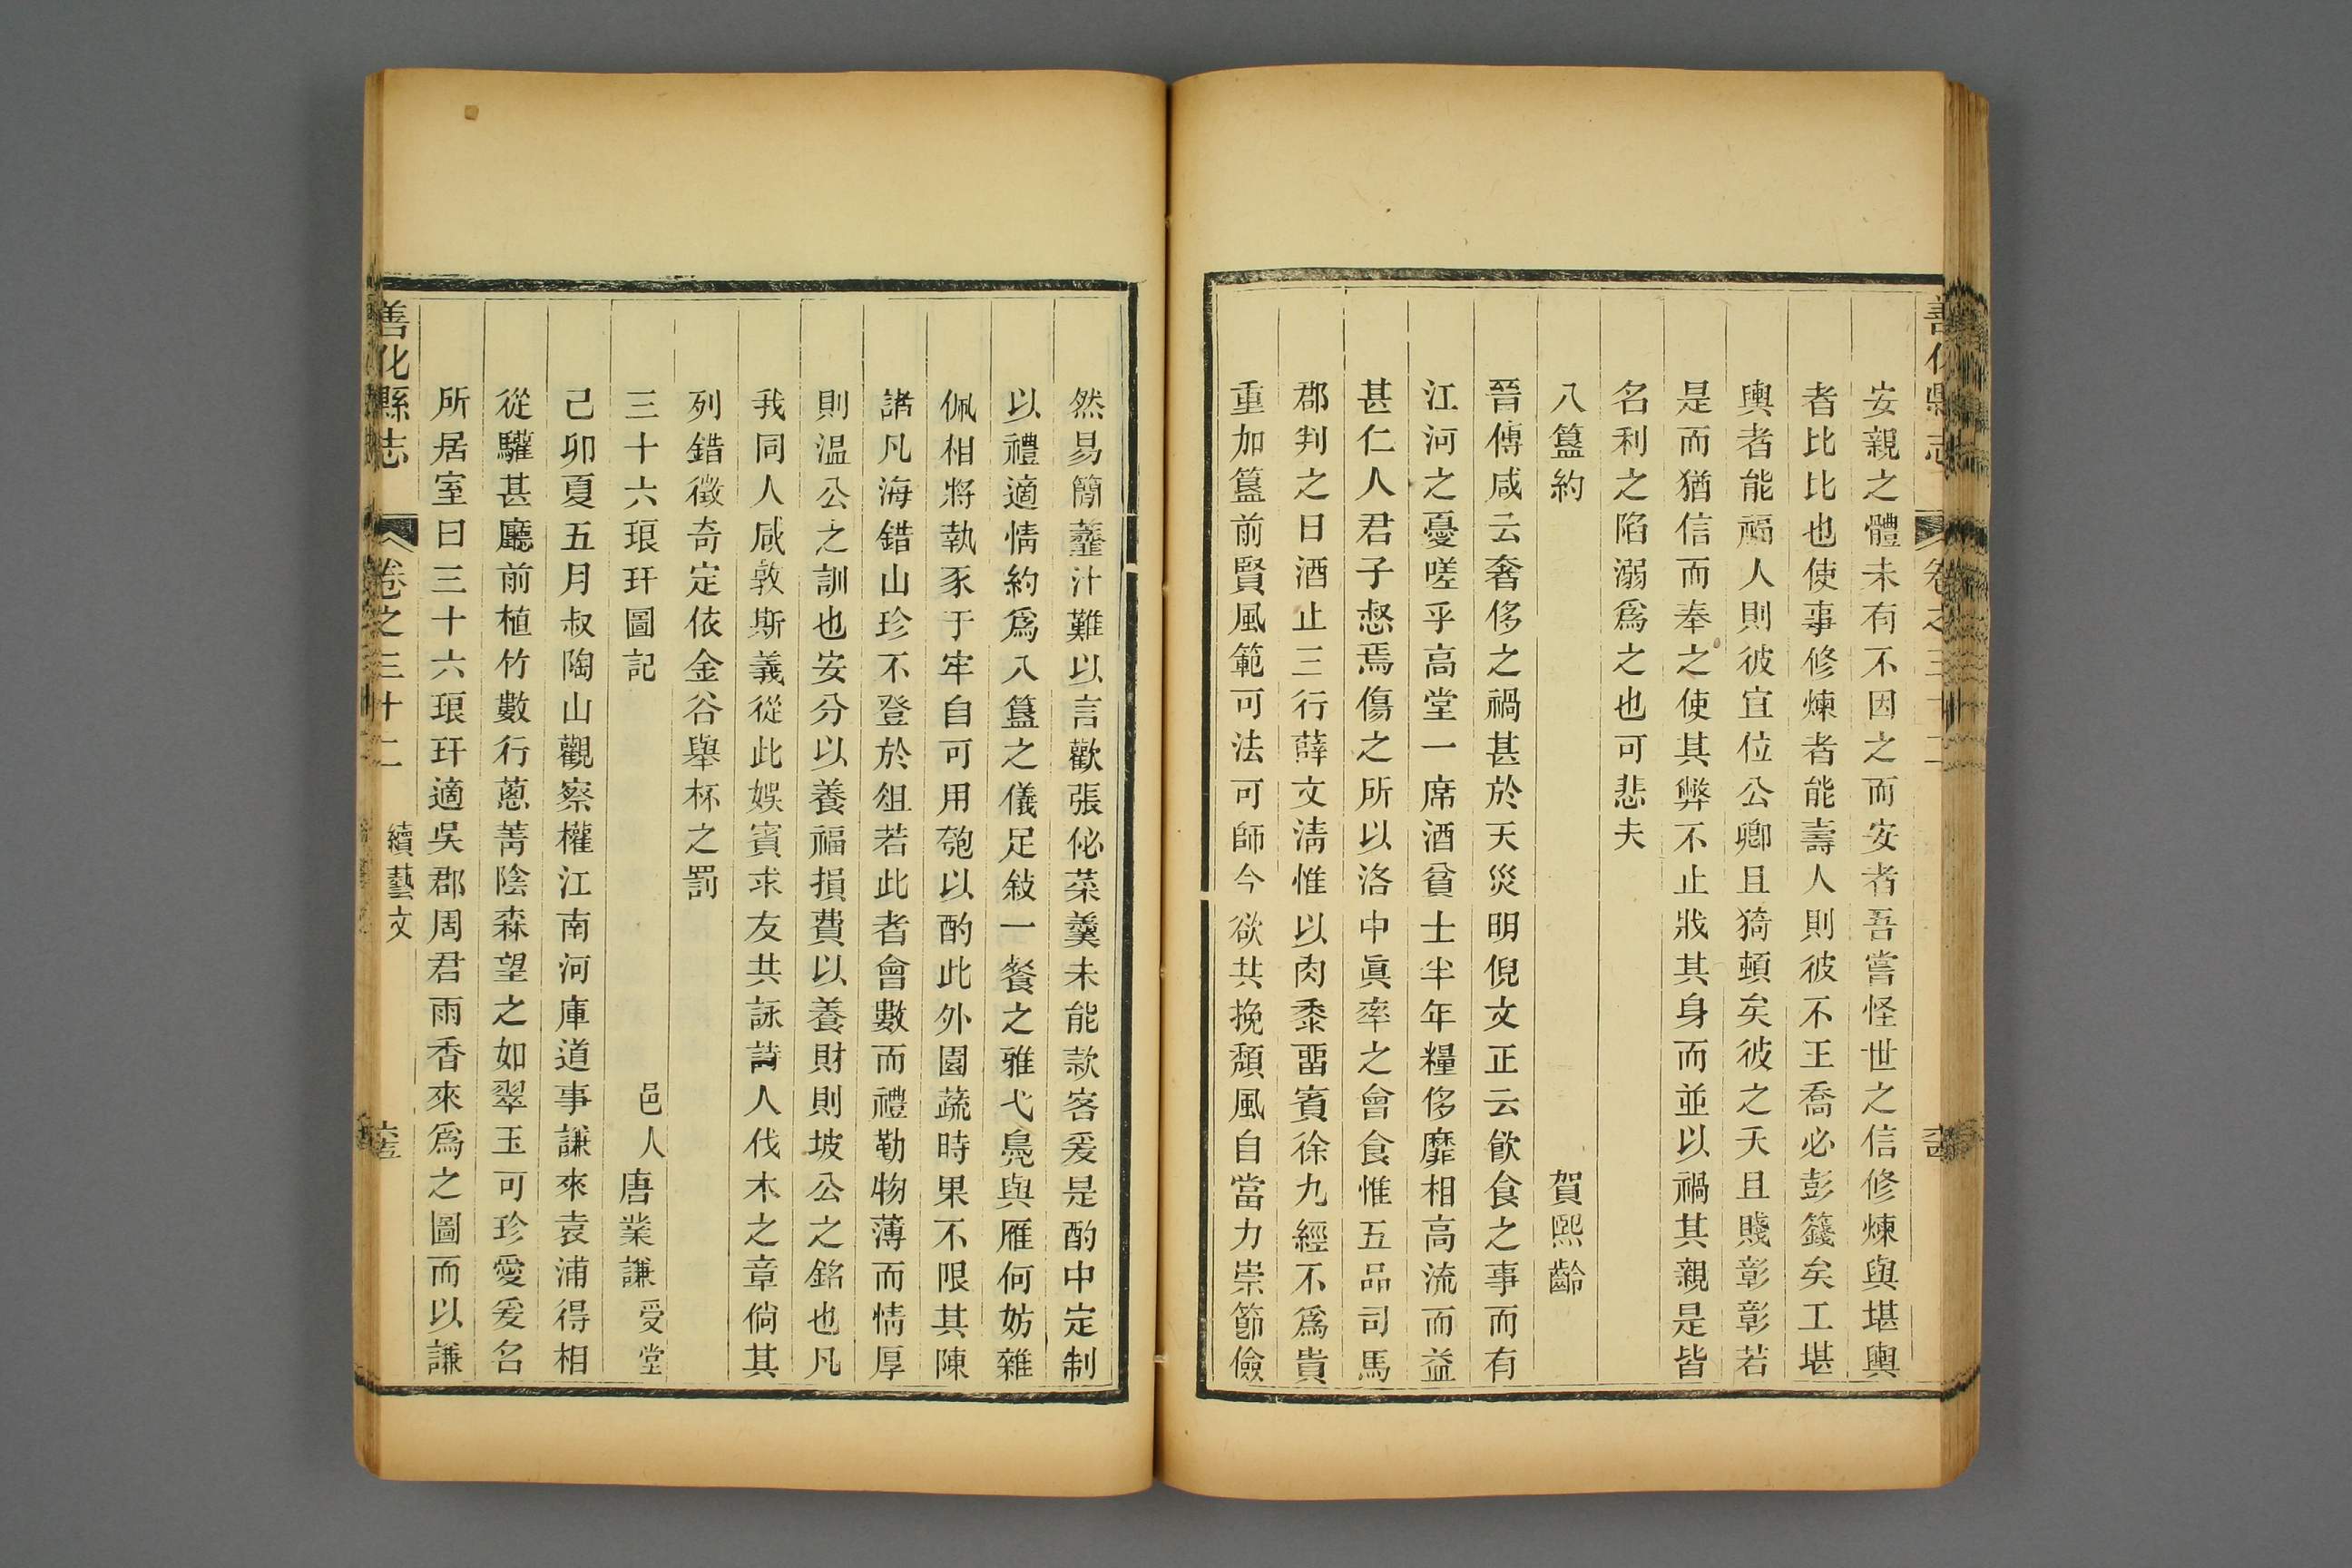 善化縣志 卷之三十二
安親之體未有不因之而安者吾嘗怪世之信修煉與堪輿
者比比也使事修煉者能壽人則彼不王喬必彭籛矣工堪
輿者能福人則彼宜位公卿且猗頓矣彼之夭且賤彰彰若
是而猶信而奉之使其弊不止戕其身而並以禍其親是皆
名利之陷溺爲之也可悲夫
八簋約 賀熙齡
晉傅咸云奢侈之禍甚於天災明倪文正云飲食之事而有
江河之憂嗟乎高堂一席酒貧士半年糧侈靡相高流而益
甚仁人君子惄焉傷之所以洛中眞率之會食惟五品司馬
郡判之日酒止三行薛文淸惟以肉黍畱賓徐九經不爲貴
重加簋前賢風範可法可師今欲共挽頹風自當力崇節儉
然易簡虀汁難以言歡張佖菜羹未能款客爰是酌中定制
以禮適情約爲八簋之儀足敍一餐之雅弋鳧與雁何妨雜
佩相將執豕于牢自可用匏以酌此外園蔬時果不限其陳
諸凡海錯山珍不登於俎若此者會數而禮勤物薄而情厚
則温公之訓也安分以養福損費以養財則坡公之銘也凡
我同人咸敦斯義從此娛賓求友共詠詩人伐木之章倘其
列錯徵奇定依金谷舉杯之罰
三十六琅玕圖記 邑人唐業謙受堂
己卯夏五月叔陶山觀察權江南河庫道事謙來袁浦得相
從驩甚廳前植竹數行蔥菁陰森望之如翠玉可珍愛爰名
所居室曰三十六琅玕適吳郡周君雨香來爲之圖而以謙
善化縣志 卷之三十二 續藝文